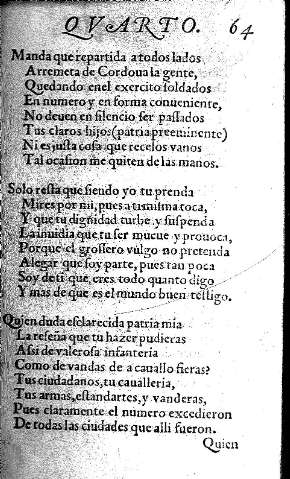 QVARTO. 64
Manda que repartida a todos lados
Arremeta de Cordoua la gente,
Quedando enel exercito soldados
En numero y en forma conueniente,
No deuen en silencio ser passados
Tus claros hijos (patria preeminente)
Ni es justa cosa que recelos vanos
Tal ocasion me quiten de las manos.
Solo resta que siendo yo tu prenda
Mires por mi, pues a tantissima toca,
Y que tu dignidad turbe y suspenda
La inuidia que tu ser mueue y prouoca,
Porque el grossero vulgo no pretenda
Alegar que soy parte, pues tan poca
Soy de ti que eres todo quanto digo
Y mas de que es el mundo buen testigo.
Quien duda esclarecida patria mia
La reseña que tu hazer pudieras
Assi de valerosa infanteria
Como de vandas de a cauallo fieras?
Tus ciudadanos, tu caualleria,
Tus armas, estandartes, y vanderas,
Pues claramente el numero excedieron
De todas las ciudades que alli fueron.
Quien